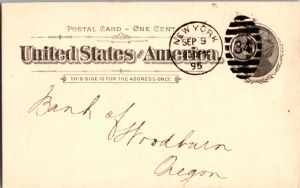 POSTAL CARD – ONE CENT
United States of America.
THIS SIDE IS FOR THE ADDRESS ONLY.
NEW YORK
SEP 9
95
Bank of
Woodburn
Oregon